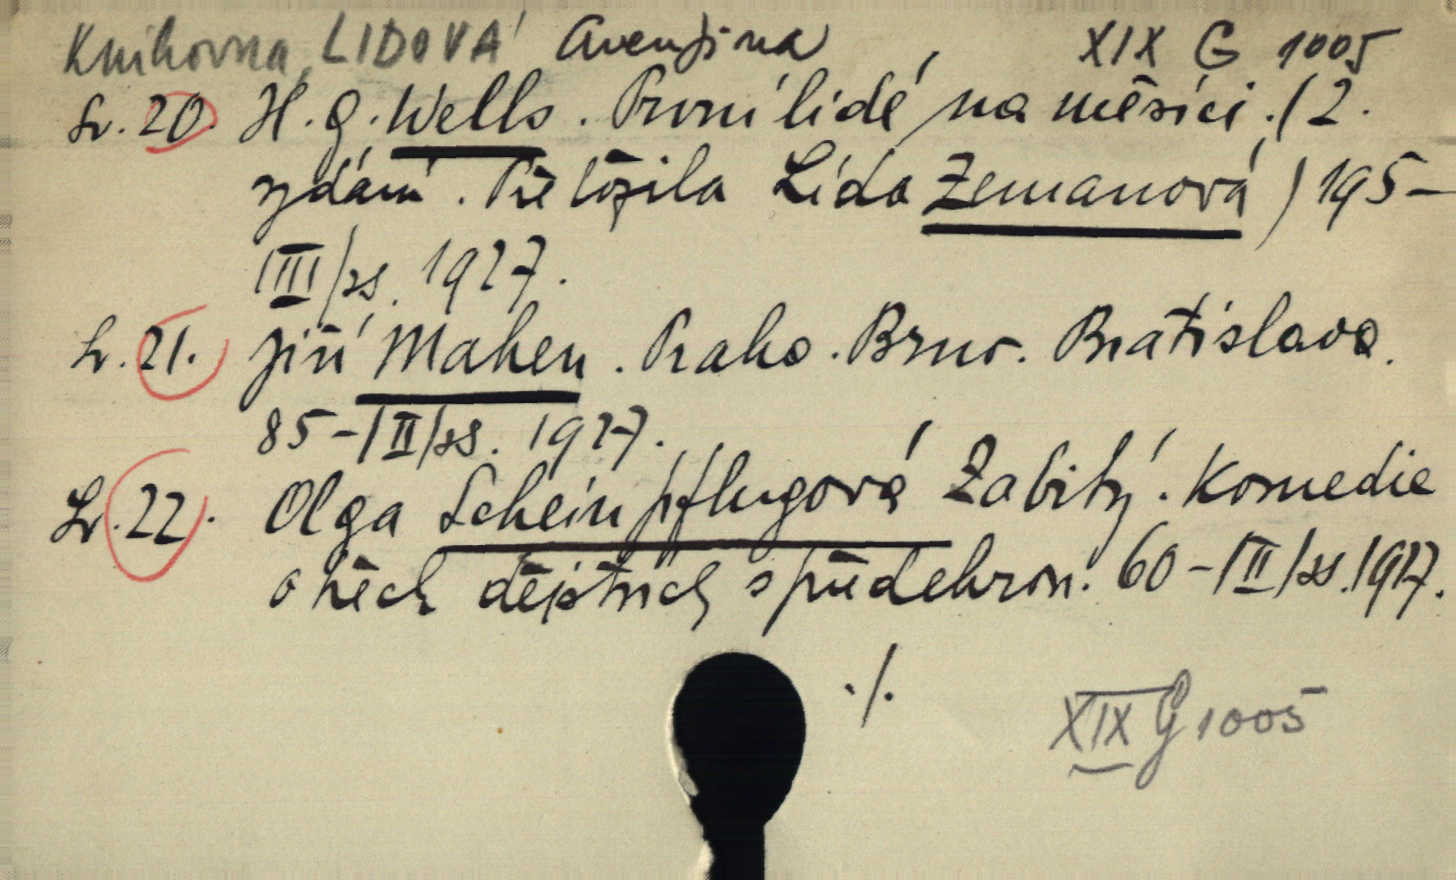 Knihovna LIDOVÁ Aventina XIX G 1005
Sv. 20. H. G. Wells. První lidé na měsíci. (2.
vydání. Přeložila Lída Zemanová) 195-
|III|/ss. 1927.
Sv. 21. Jiří Mahen. Praha. Brno. Bratislava.
85-|II|/ss. 1927.
Sv. 22. Olga Scheinpflugová Zabitý. Komedie
o třech dějstvích s předehrou. 60-|II|/ss. 1927.
./.
XIX G 1005